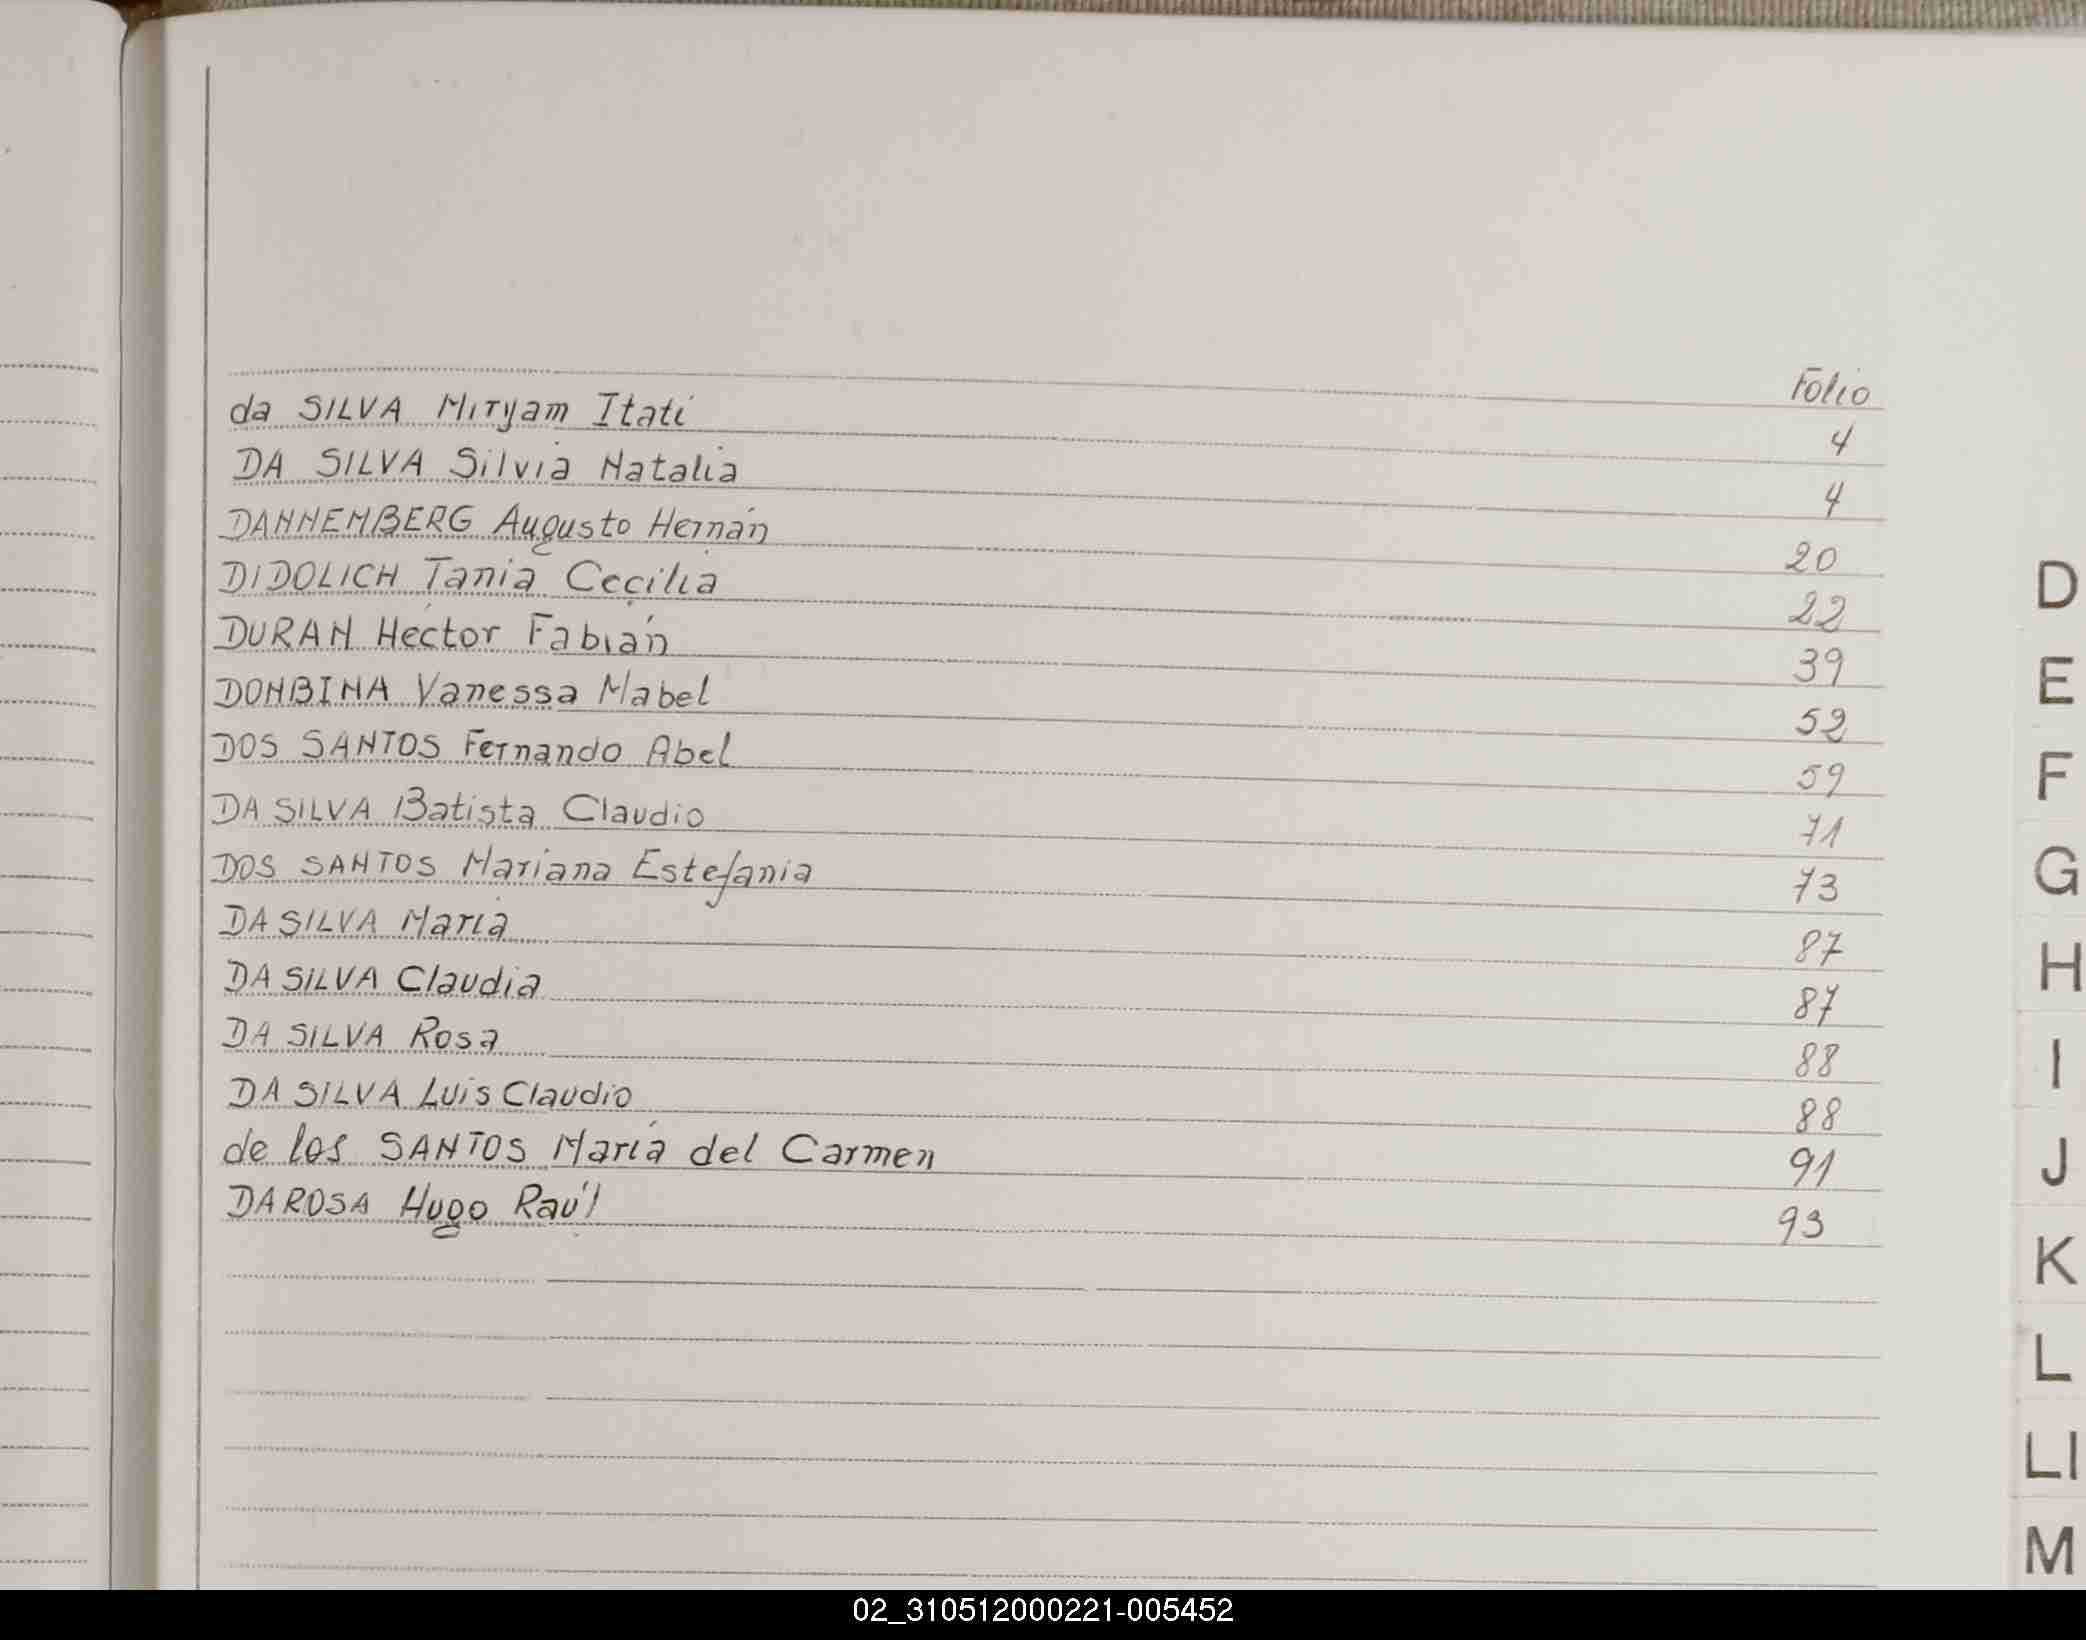 Folio
da SILVA Miryam Itatí 4
DA SILVA Silvia Natalia 4
DANNEMBERG Augusto Hernán 20
DIDOLICH Tania Cecilia 22
DURAN Héctor Fabián 39
DONBINA Vanessa Mabel 52
DOS SANTOS Fernando Abel 59
DA SILVA Batista Claudio 71
DOS SANTOS Mariana Estefania 73
DA SILVA María 87
DA SILVA Claudia 87
DA SILVA Rosa 88
DA SILVA Luis Claudio 88
de los SANTOS María del Carmen 91
DAROSA Hugo Raúl 93
D
E
F
G
H
I
J
K
L
Ll
M
02_310512000221-005452